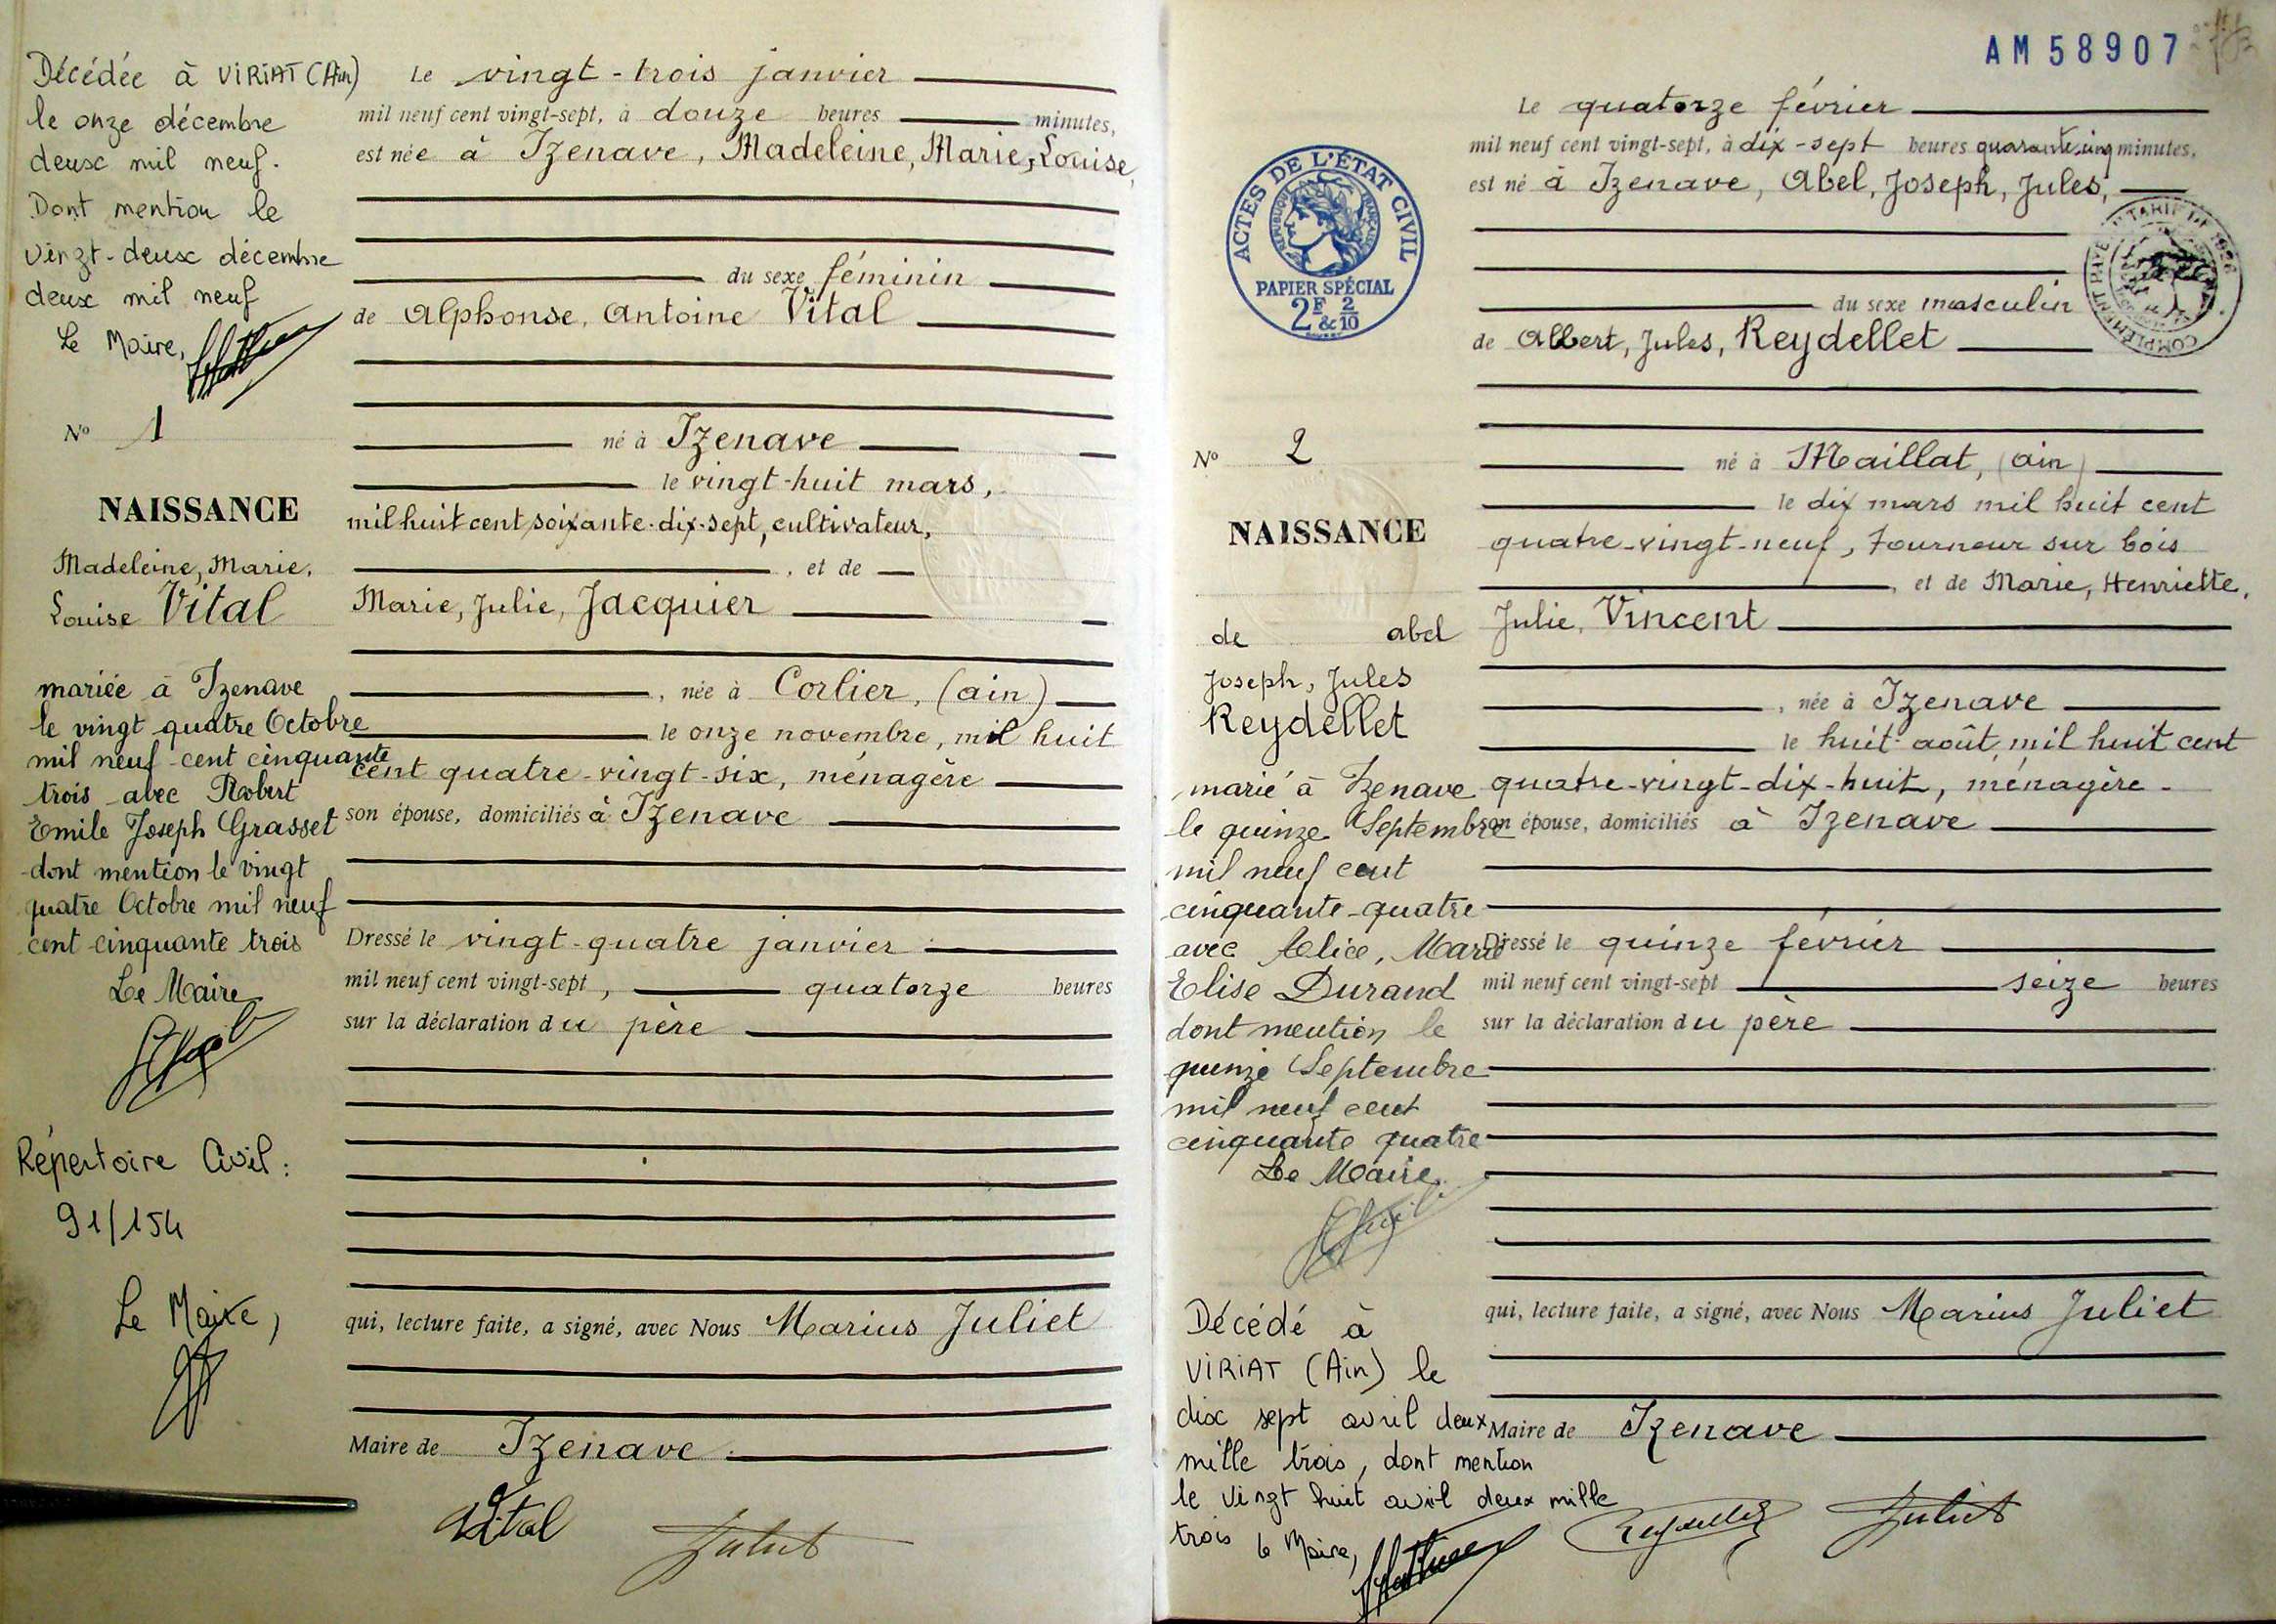 Décédée à VIRIAT (Ain)
le onze décembre
deux mil neuf.
Dont mention le
vingt-deux décembre
deux mil neuf
Le Maire,
N° 1
NAISSANCE
Madeleine, Marie,
Louise Vital
mariée à Izenave
le vingt quatre Octobre
mil neuf-cent cinquante
trois avec Robert
Emile Joseph Grasset
dont mention le vingt
quatre Octobre mil neuf
cent cinquante trois
Le Maire
Répertoire Civil :
91/154
Le Maire,
Le vingt-trois janvier
mil neuf cent vingt-sept, à douze heures minutes,
est née à Izenave, Madeleine, Marie, Louise,
du sexe féminin
de Alphonse, Antoine Vital
né à Izenave
le vingt-huit mars,
mil huit cent soixante-dix-sept, cultivateur,
, et de
Marie, Julie, Jacquier
, née à Corlier, (ain)
le onze novembre, mil huit
cent quatre-vingt-six, ménagère
son épouse, domiciliés à Izenave
Dressé le vingt-quatre janvier
mil neuf cent vingt-sept, quatorze heures
sur la déclaration du père
qui, lecture faite, a signé, avec Nous Marius Juliet
Maire de Izenave.
Vital
Juliet
AM 58907
ACTES DE L'ÉTAT CIVIL
RÉPUBLIQUE FRANÇAISE
PAPIER SPÉCIAL
2F & 2/10
COMPLÉMENT PAYÉ TARIF DE 1926
N° 2
NAISSANCE
de abel
Joseph, Jules
Reydellet
marié à Izenave
le quinze Septembre
mil neuf cent
cinquante-quatre
avec Alice, Marie
Elise Durand
dont mention le
quinze Septembre
mil neuf cent
cinquante quatre
Le Maire
Décédé à
VIRIAT (Ain) le
dix sept avril deux
mille trois, dont mention
le vingt huit avril deux mille
trois le Maire,
Le quatorze février
mil neuf cent vingt-sept, à dix-sept heures quarante-cinq minutes,
est né à Izenave, Abel, Joseph, Jules,
du sexe masculin
de Albert, Jules, Reydellet
né à Maillat, (ain)
le dix mars mil huit cent
quatre-vingt-neuf, Tourneur sur bois
, et de Marie, Henriette,
Julie, Vincent
, née à Izenave
le huit août mil huit cent
quatre-vingt-dix-huit, ménagère -
son épouse, domiciliés à Izenave
Dressé le quinze février
mil neuf cent vingt-sept seize heures
sur la déclaration du père
qui, lecture faite, a signé, avec Nous Marius Juliet
Maire de Izenave
Reydellet
Juliet